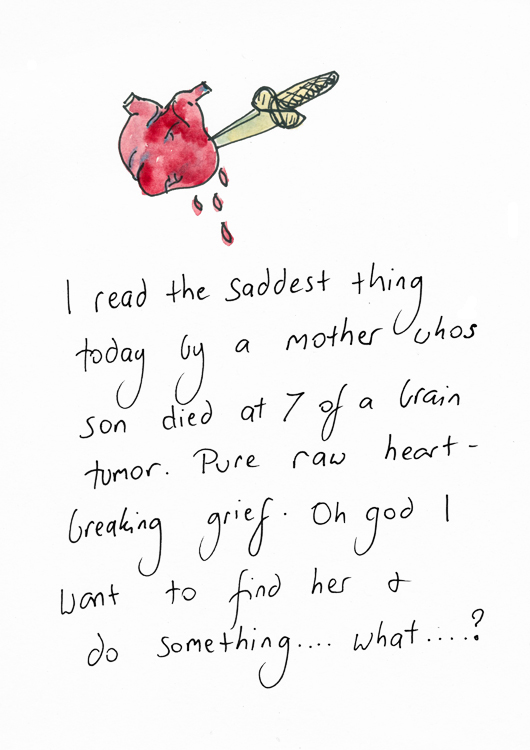 I read the saddest thing
today by a mother whos
son died at 7 of a brain
tumor. Pure raw heart-
breaking grief. Oh god I
want to find her &
do something.... what....?